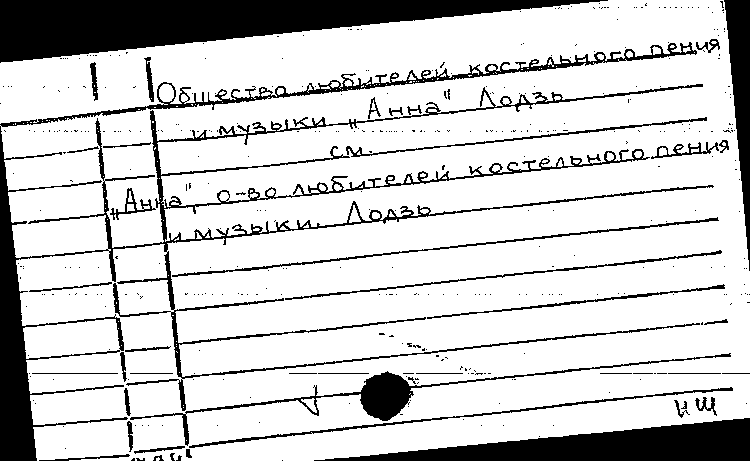 Общество любителей костельного пения
и музыки „Анна". Лодзь
см.
„Анна", о-во любителей костельного пения
и музыки. Лодзь
НШ